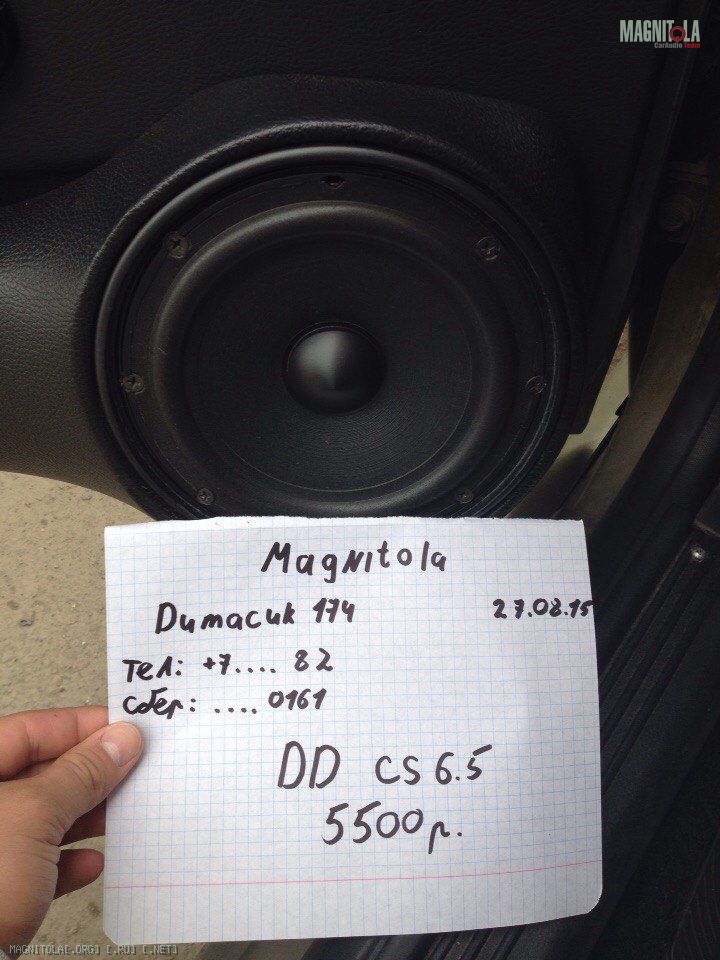 MAGNITOLA
CarAudio Team
Magnitola
Димасик 174
27.08.15
Тел: +7.... 82
Сбер: .... 0161
DD CS 6.5
5500р.
MAGNITOLA[.ORG] [.RU] [.NET]